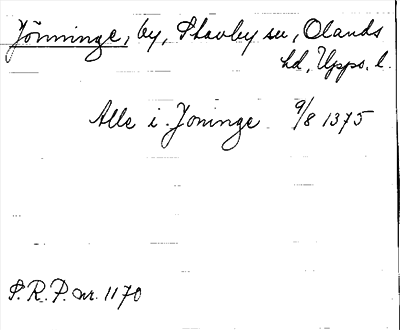 Jönninge, by, Skavby sn, Olands
hd, Upps. l.
Alle i Joninge 9/8 1375
S.R.P. nr. 1170